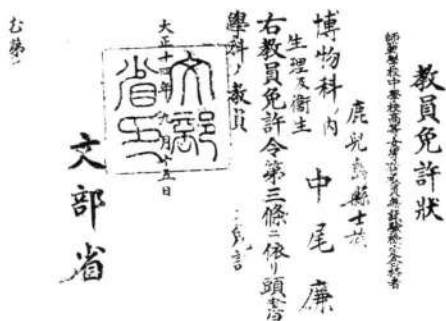 教員免許狀
師範學校中學校高等女學校教員無試驗檢定合格者
鹿兒島縣士族
中尾廉
博物科ノ內
生理及衞生
右教員免許令第三條ニ依リ頭書
學科ノ教員
大正十四年九月十五日
文部省印
文部省